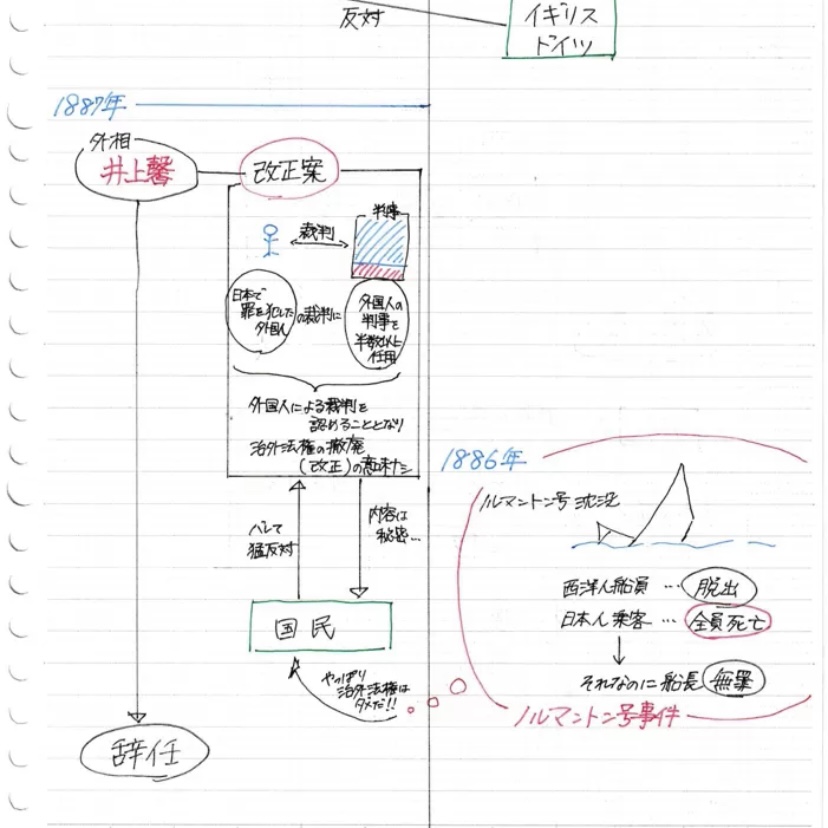 反対
イギリス
ドイツ
1887年
外相
井上馨
改正案
判事
裁判
日本で
罪を犯した
外国人
の裁判に
外国人の
判事を
半数以上
任用
外国人による裁判を
認めることとなり
治外法権の撤廃
(改正)の意味ナシ
バレて
猛反対
内容は
秘密…
国民
やっぱり
治外法権は
ダメだ!!
辞任
1886年
ノルマントン号沈没
西洋人船員 … 脱出
日本人乗客 … 全員死亡
それなのに船長 無罪
ノルマントン号事件